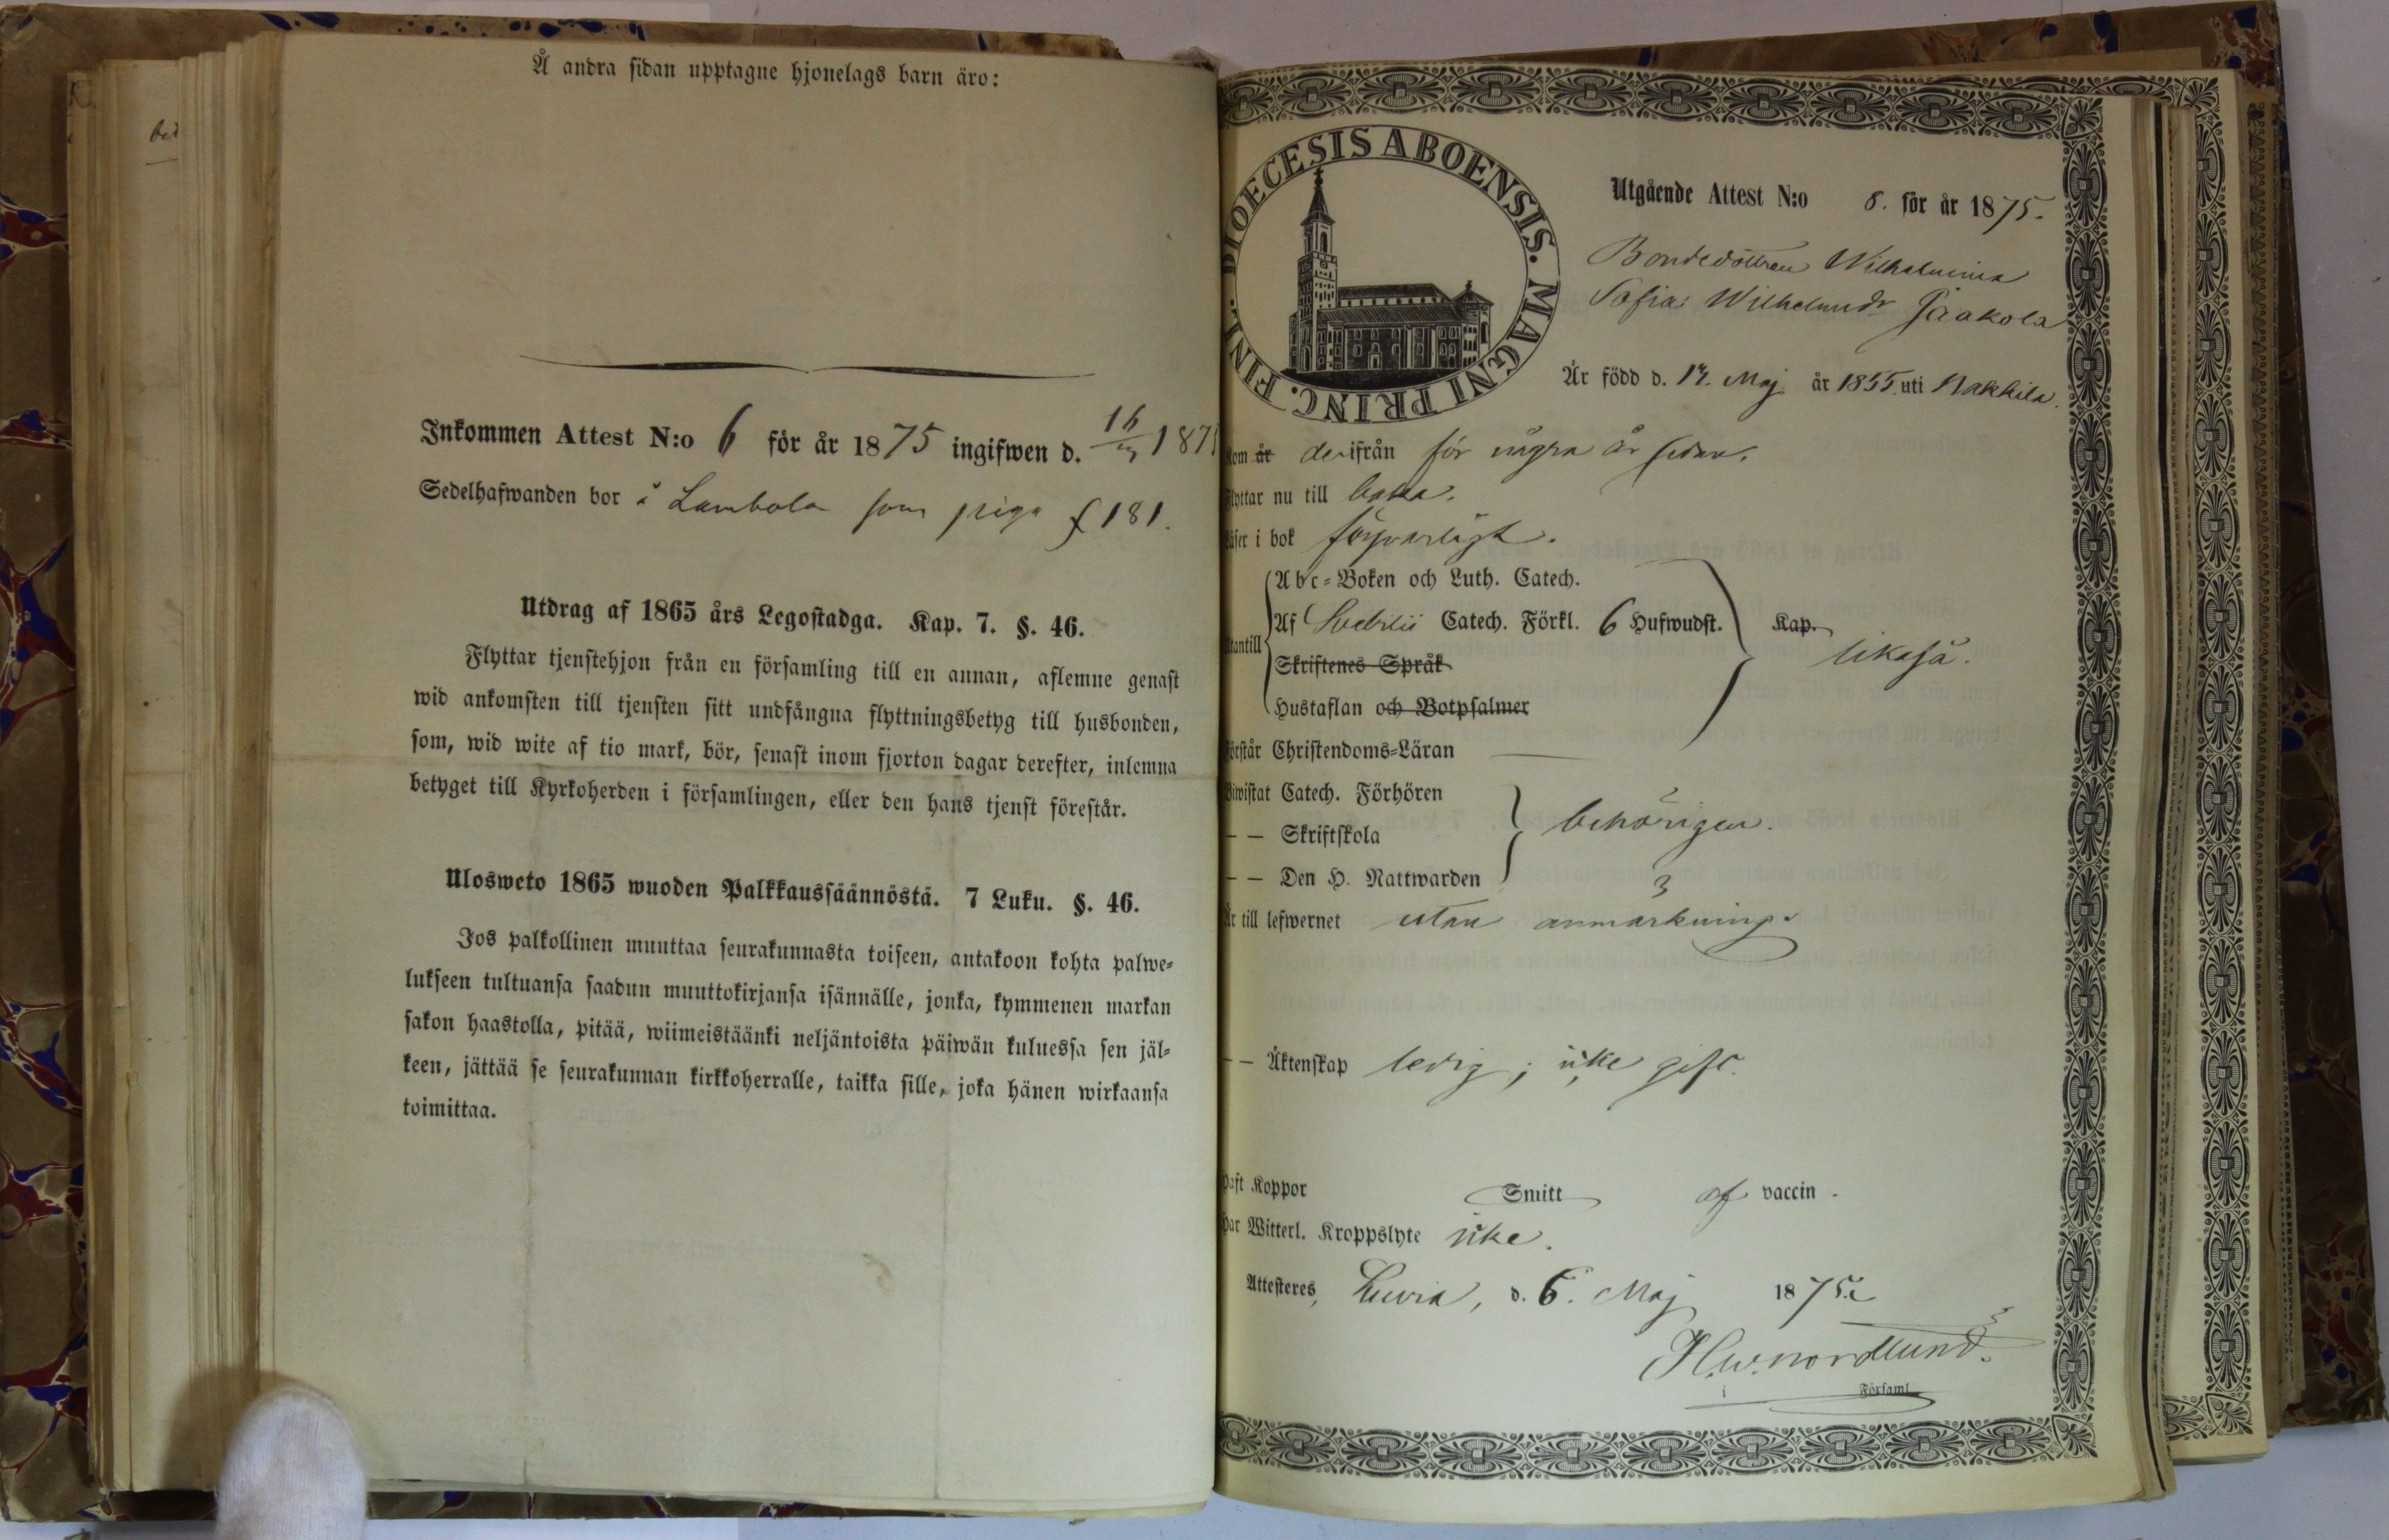 bed
Å andra sidan upptagne hjonelags barn äro:
Inkommen Attest N:o 6 för år 1875 ingifwen d. 16/5 187
Sedelhafwanden bor å Lambola som piga f 181.
Utdrag af 1865 års Legostadga. Kap. 7. §. 46.
Flyttar tjenstehjon från en församling till en annan, aflemne genast
wid ankomsten till tjensten sitt undfångna flyttningsbetyg till husbonden,
som, wid wite af tio mark, bör, senast inom fjorton dagar derefter, inlemna
betyget till Kyrkoherden i församlingen, eller den hans tjenst förestår.
Ulosweto 1865 wuoden Palkkaussäännöstä. 7 Luku. §. 46.
Jos palkollinen muuttaa seurakunnasta toiseen, antakoon kohta palwe-
lukseen tultuansa saadun muuttokirjansa isännälle, jonka, kymmenen markan
sakon haastolla, pitää, wiimeistäänki neljäntoista päiwän kuluessa sen jäl-
keen, jättää se seurakunnan kirkkoherralle, taikka sille, joka hänen wirkaansa
toimittaa.
DIOECESIS ABOENSIS. MAGNI PRINC. FINL.
Utgående Attest N:o 6. för år 1875.
Bondedottren Wilhelmina
Sofia Wilhelmsdr Jaakola
Är född d. 14. Maj år 1855. uti Nakkila.
kom år derifrån för några år sedan.
flyttar nu till baka.
Läser i bok försvarligt.
Abc-Boken och Luth. Catech.
Utantill Af Svebilii Catech. Förkl. 6 Hufwudst. Kap. likaså.
Skriftenes Språk
Hustaflan och Botpsalmer
Förstår Christendoms-Läran
Biwistat Catech. Förhören
— — Skriftskola behörigen.
— — Den H. Nattwarden
Är till lefwernet utan anmärkning.
— — Äktenskap ledig; icke gift.
Haft Koppor Smitt af vaccin.
Har Witterl. Kroppslyte icke.
Attesteres, Luvia, d. 6. Maj 1875.
H.W. Nordlund.
i Församl.